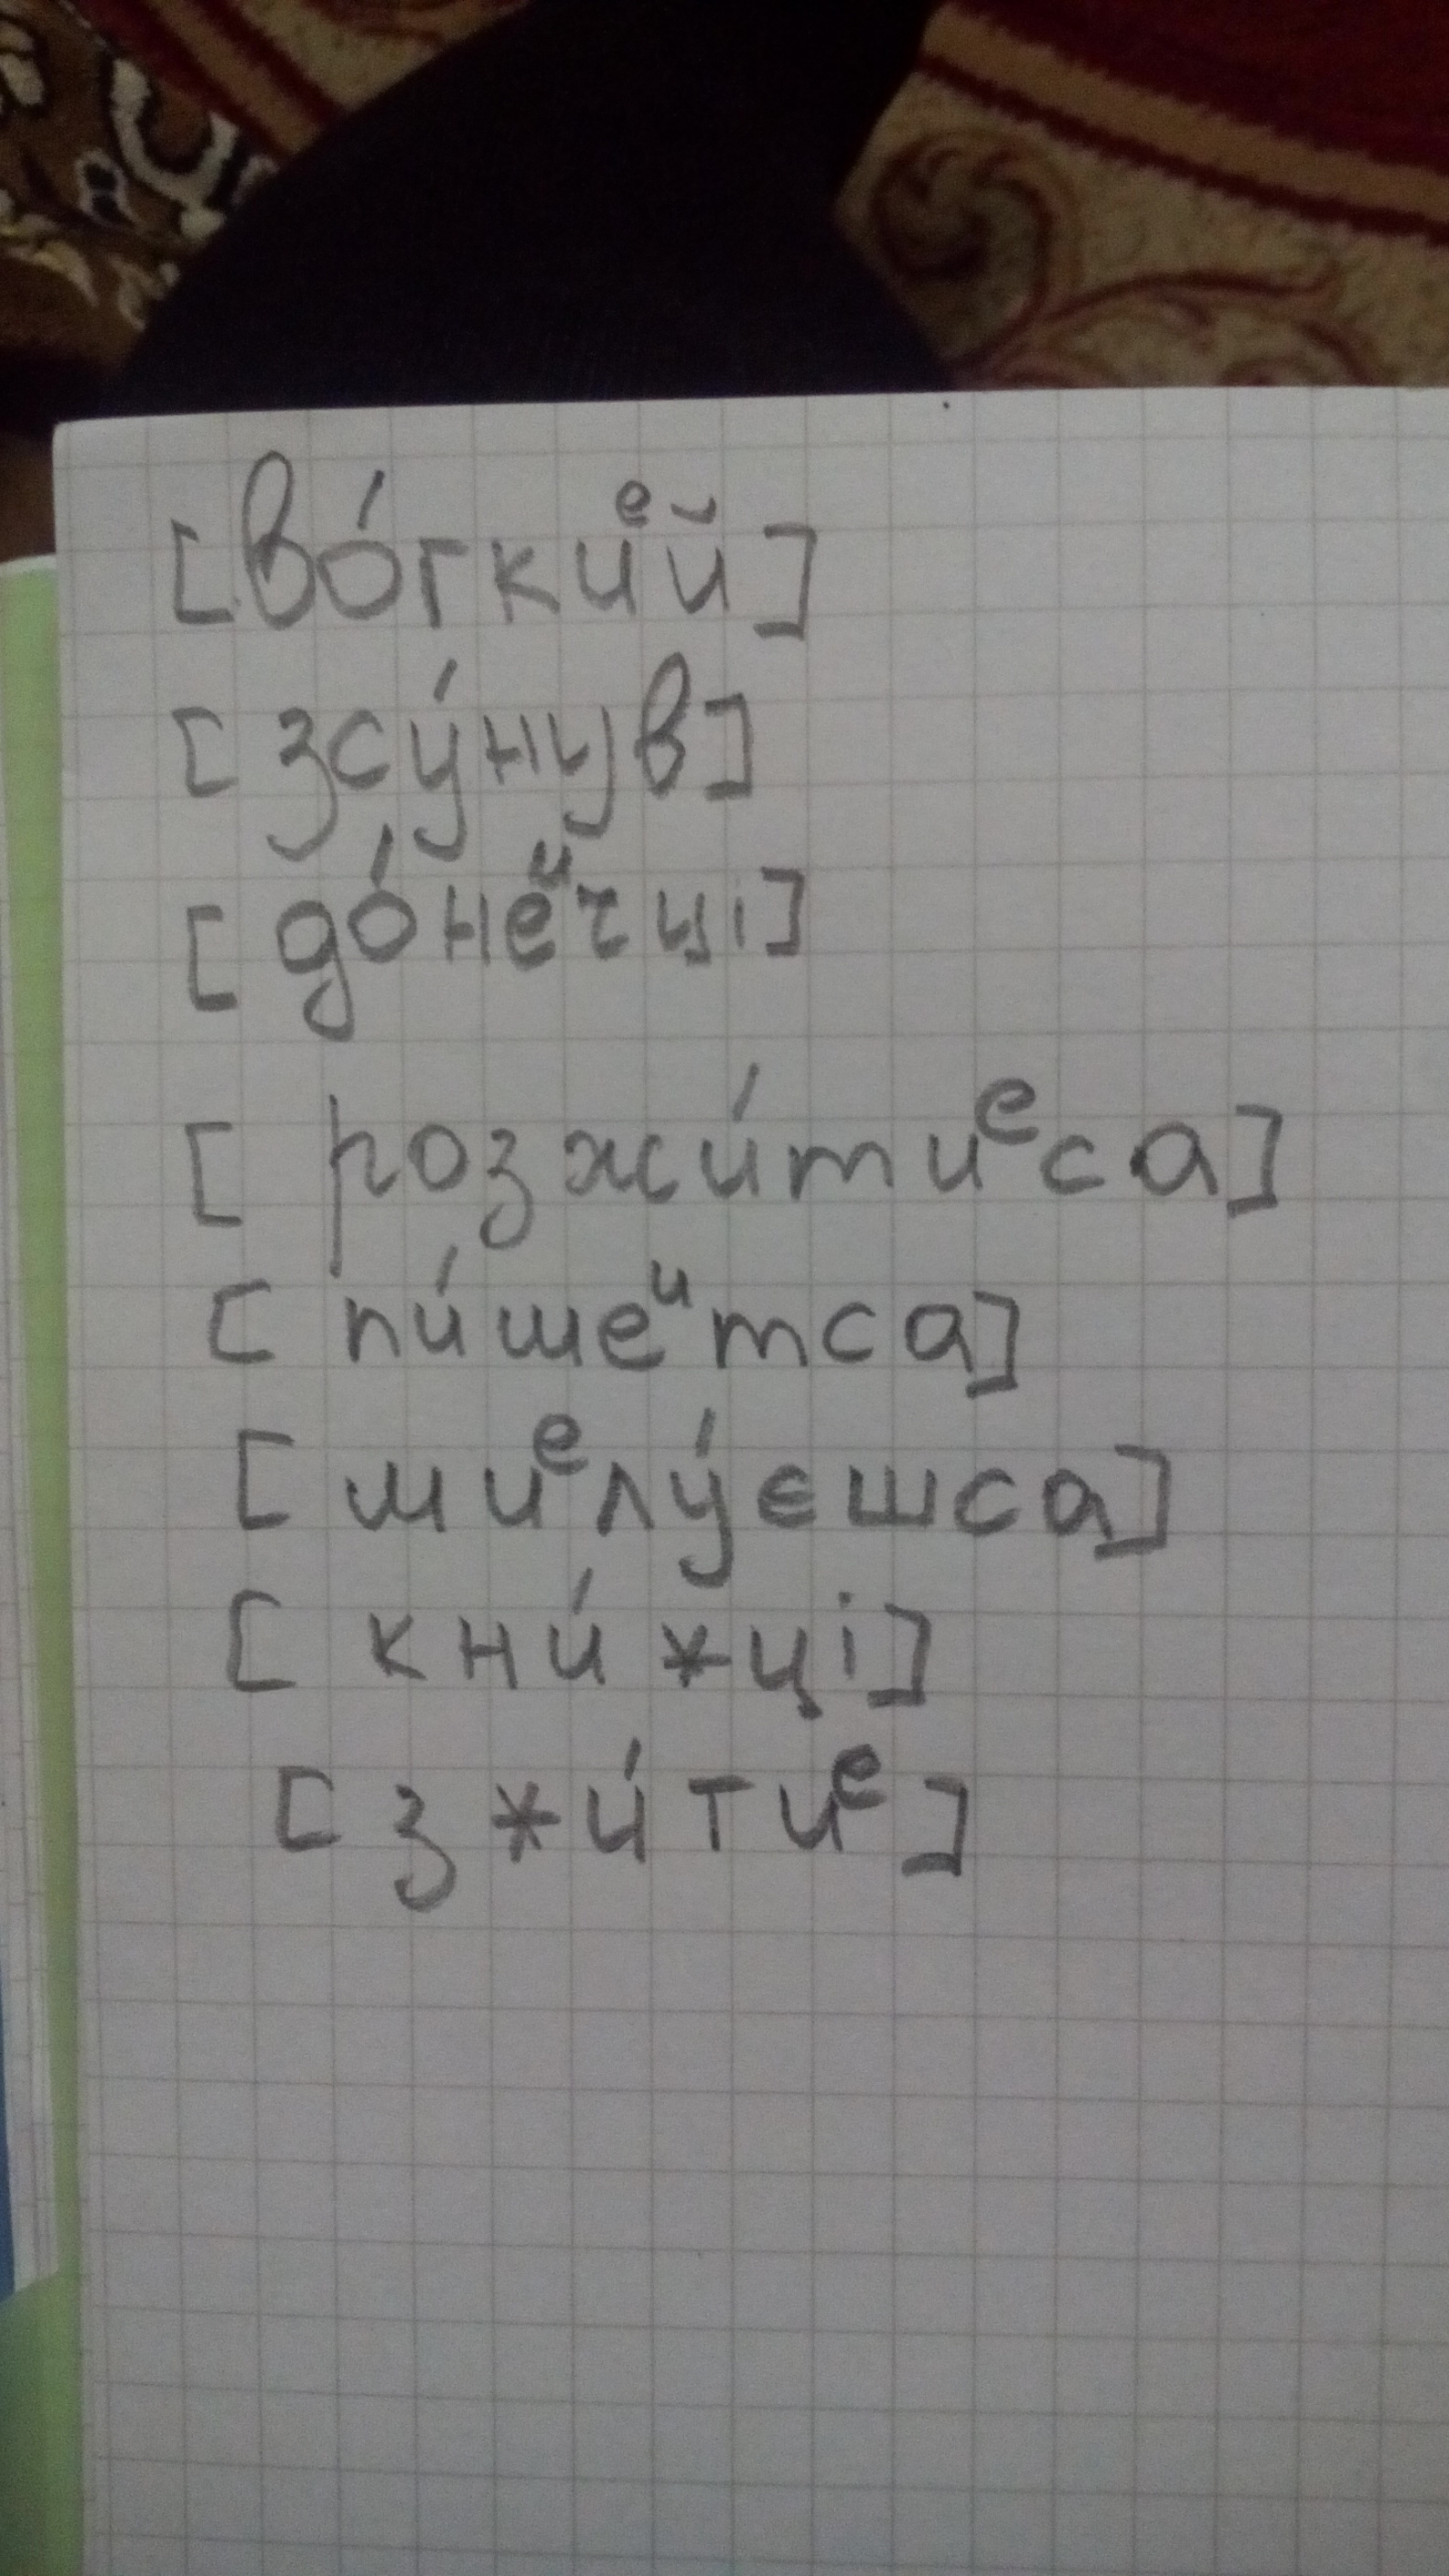 [во́гкиᵉй]
[зсу́нув]
[до́неᶦчці]
[розжи́тиᵉса]
[пи́шеᶦтса]
[миᵉлу́єшса]
[кни́жці]
[зжи́тиᵉ]